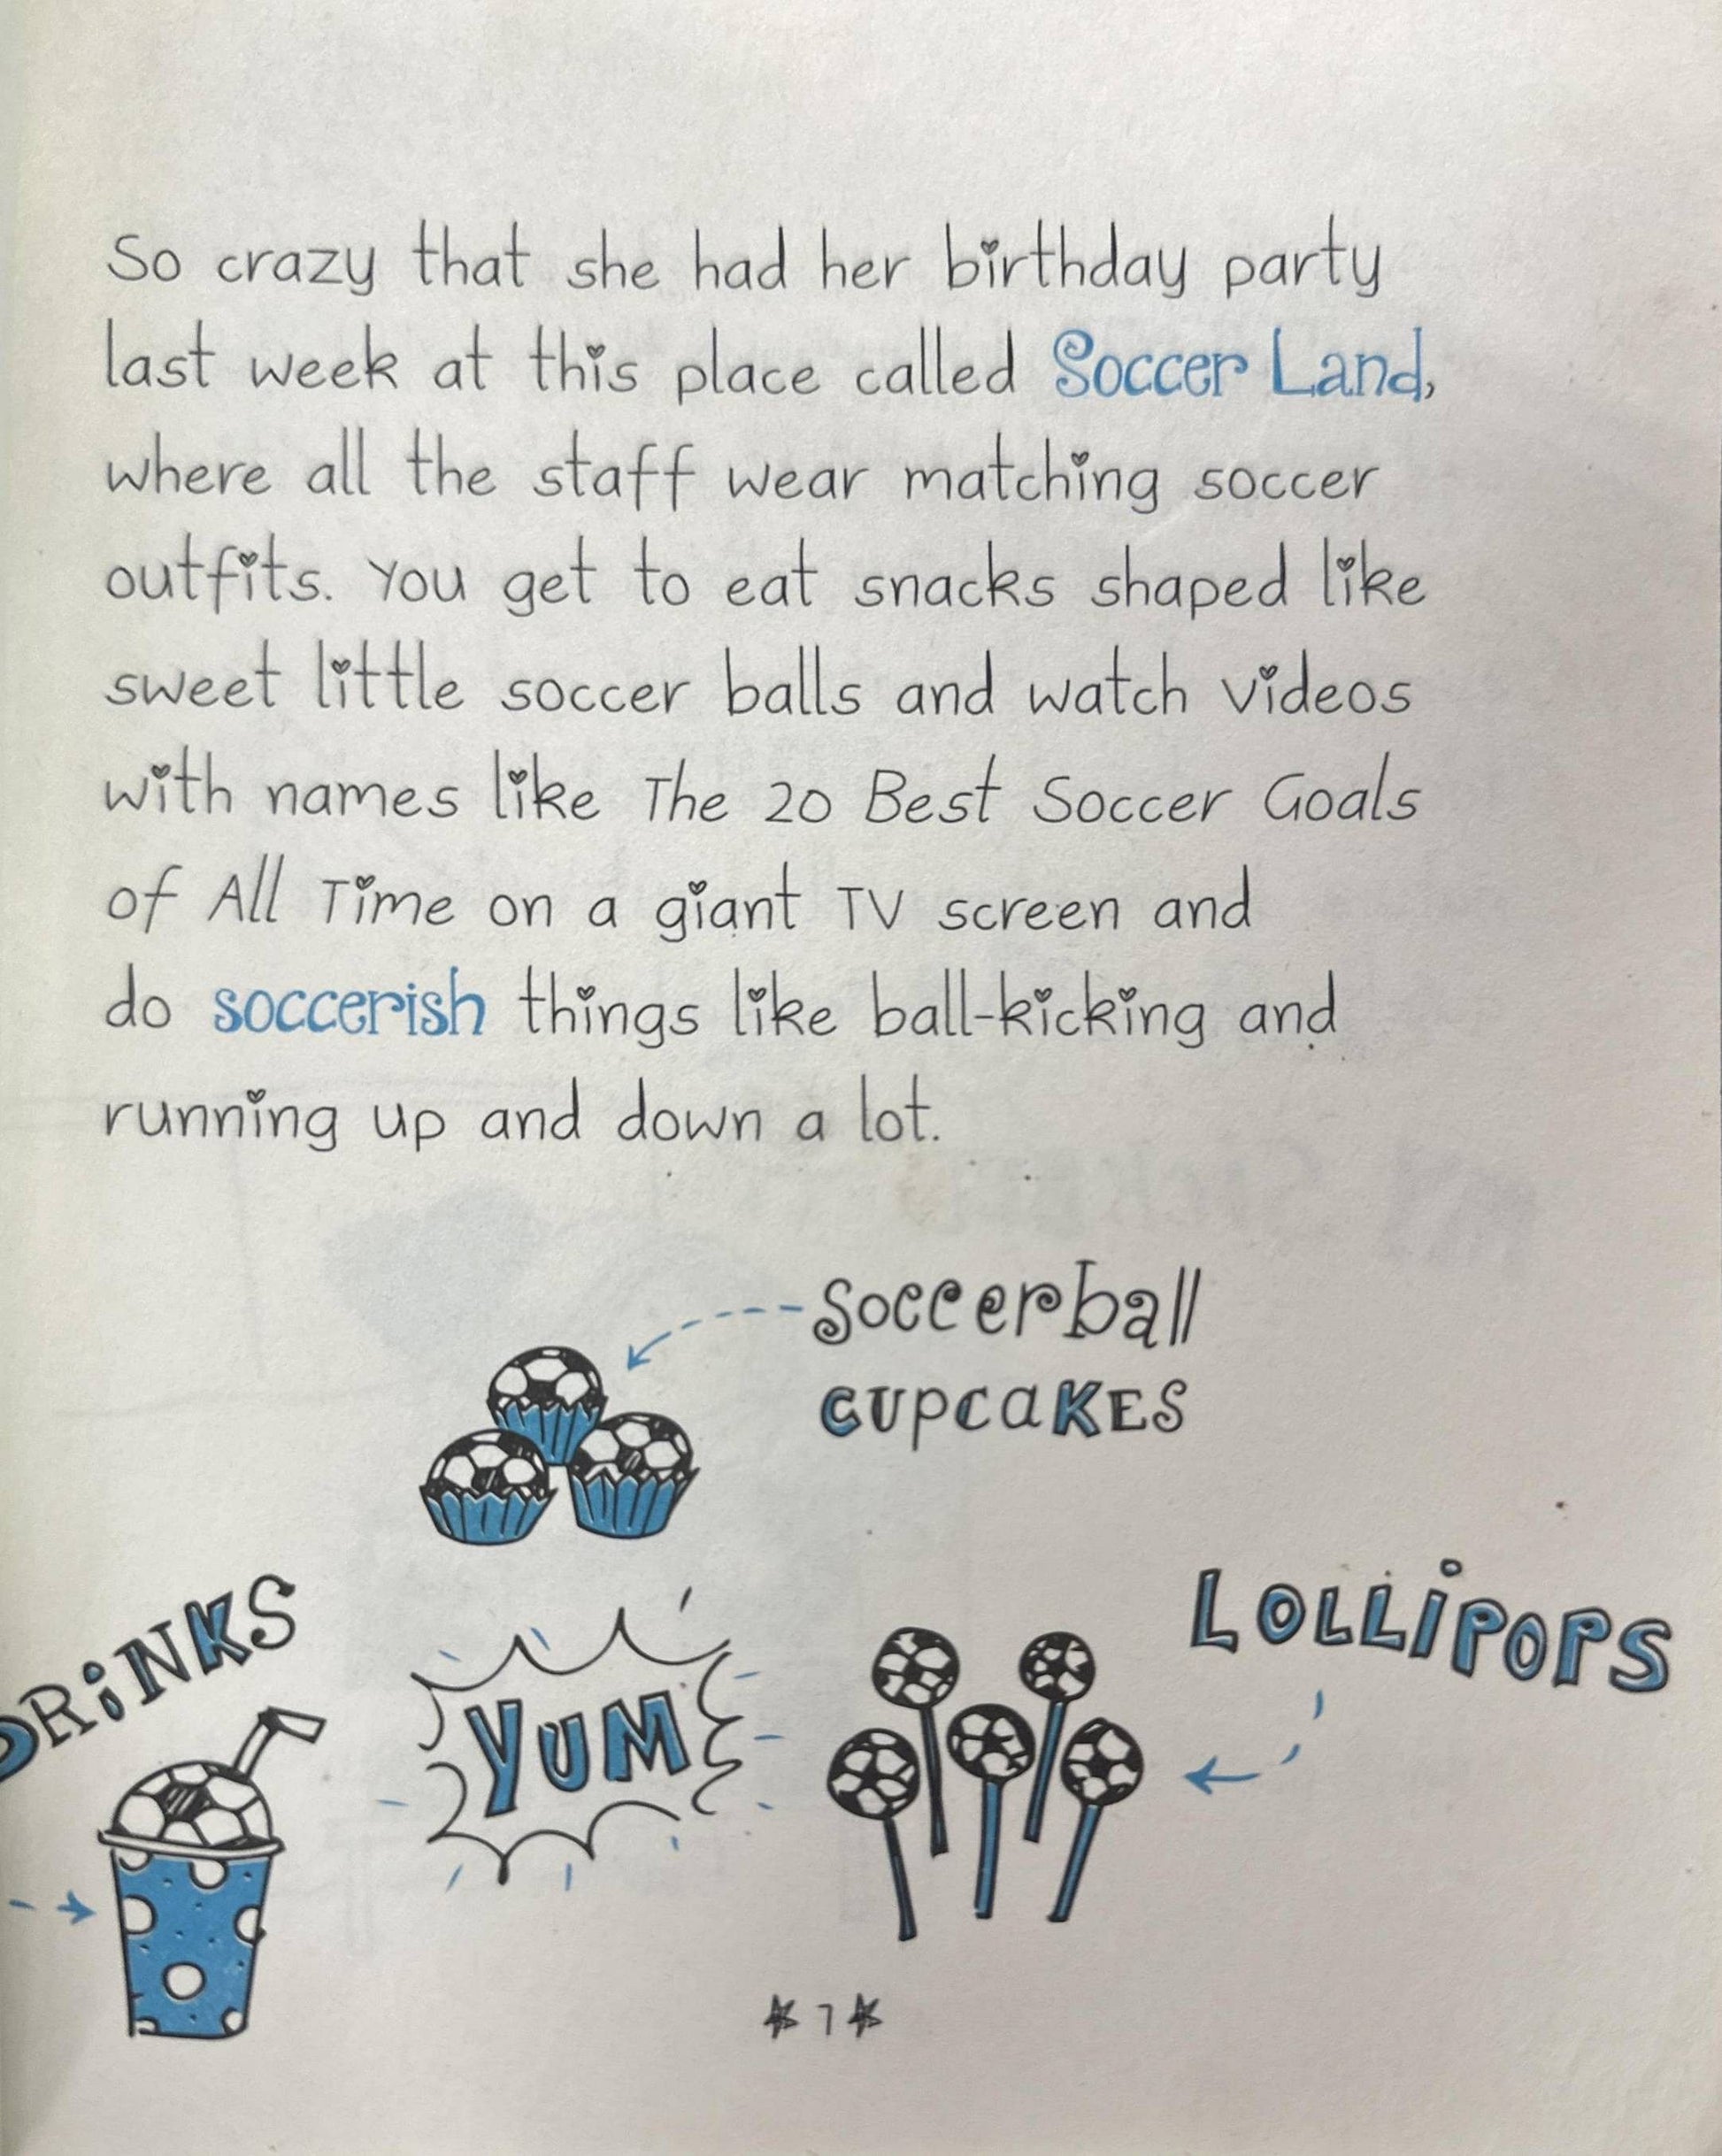 So crazy that she had her birthday party
last week at this place called Soccer Land,
where all the staff wear matching soccer
outfits. You get to eat snacks shaped like
sweet little soccer balls and watch videos
with names like The 20 Best Soccer Goals
of All Time on a giant TV screen and
do soccerish things like ball-kicking and
running up and down a lot.
Soccerball
CUPCAKES
DRiNKS
YUM
LOLLiPOPS
7